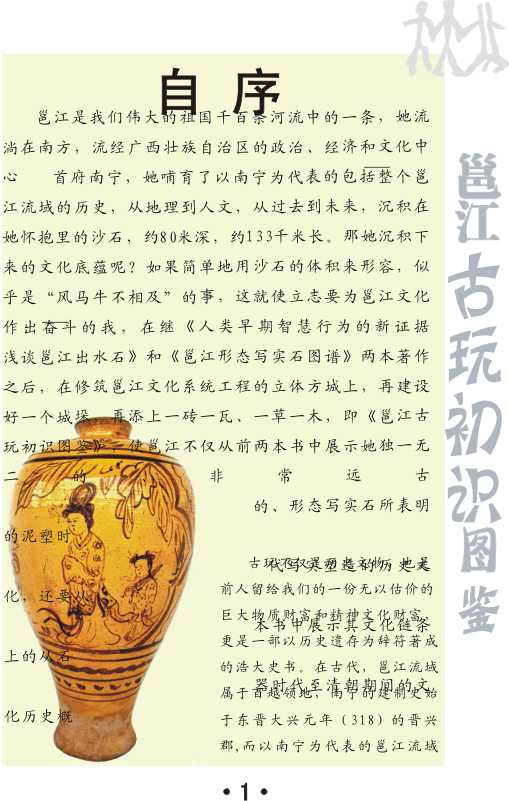 自 序
邕江是我们伟大的祖国千百条河流中的一条，她流
淌在南方，流经广西壮族自治区的政治、经济和文化中
心 首府南宁，她哺育了以南宁为代表的包括整个邕
江流域的历史，从地理到人文，从过去到未来，沉积在
她怀抱里的沙石，约80米深，约133千米长。那她沉积下
来的文化底蕴呢？如果简单地用沙石的体积来形容，似
乎是“风马牛不相及”的事，这就使立志要为邕江文化
作出奋斗的我，在继《人类早期智慧行为的新证据
浅谈邕江出水石》和《邕江形态写实石图谱》两本著作
之后，在修筑邕江文化系统工程的立体方城上，再建设
好一个城垛，再添上一砖一瓦、一草一木，即《邕江古
玩初识图鉴》，使邕江不仅从前两本书中展示她独一无
二 的 非 常 远 古
的、形态写实石所表明
的泥塑时
化，还要从
本书中展示其文化链条
上的从石
器时代至清朝期间的文
化历史概
前人留给我们的一份无以估价的
巨大物质财富和精神文化财富，
更是一部以历史遗存为辞符著成
的浩大史书。在古代，邕江流域
属于百越领地，南宁的建制史始
于东晋大兴元年（318）的晋兴
郡,而以南宁为代表的邕江流域
邕江古玩初识图鉴
• 1 •